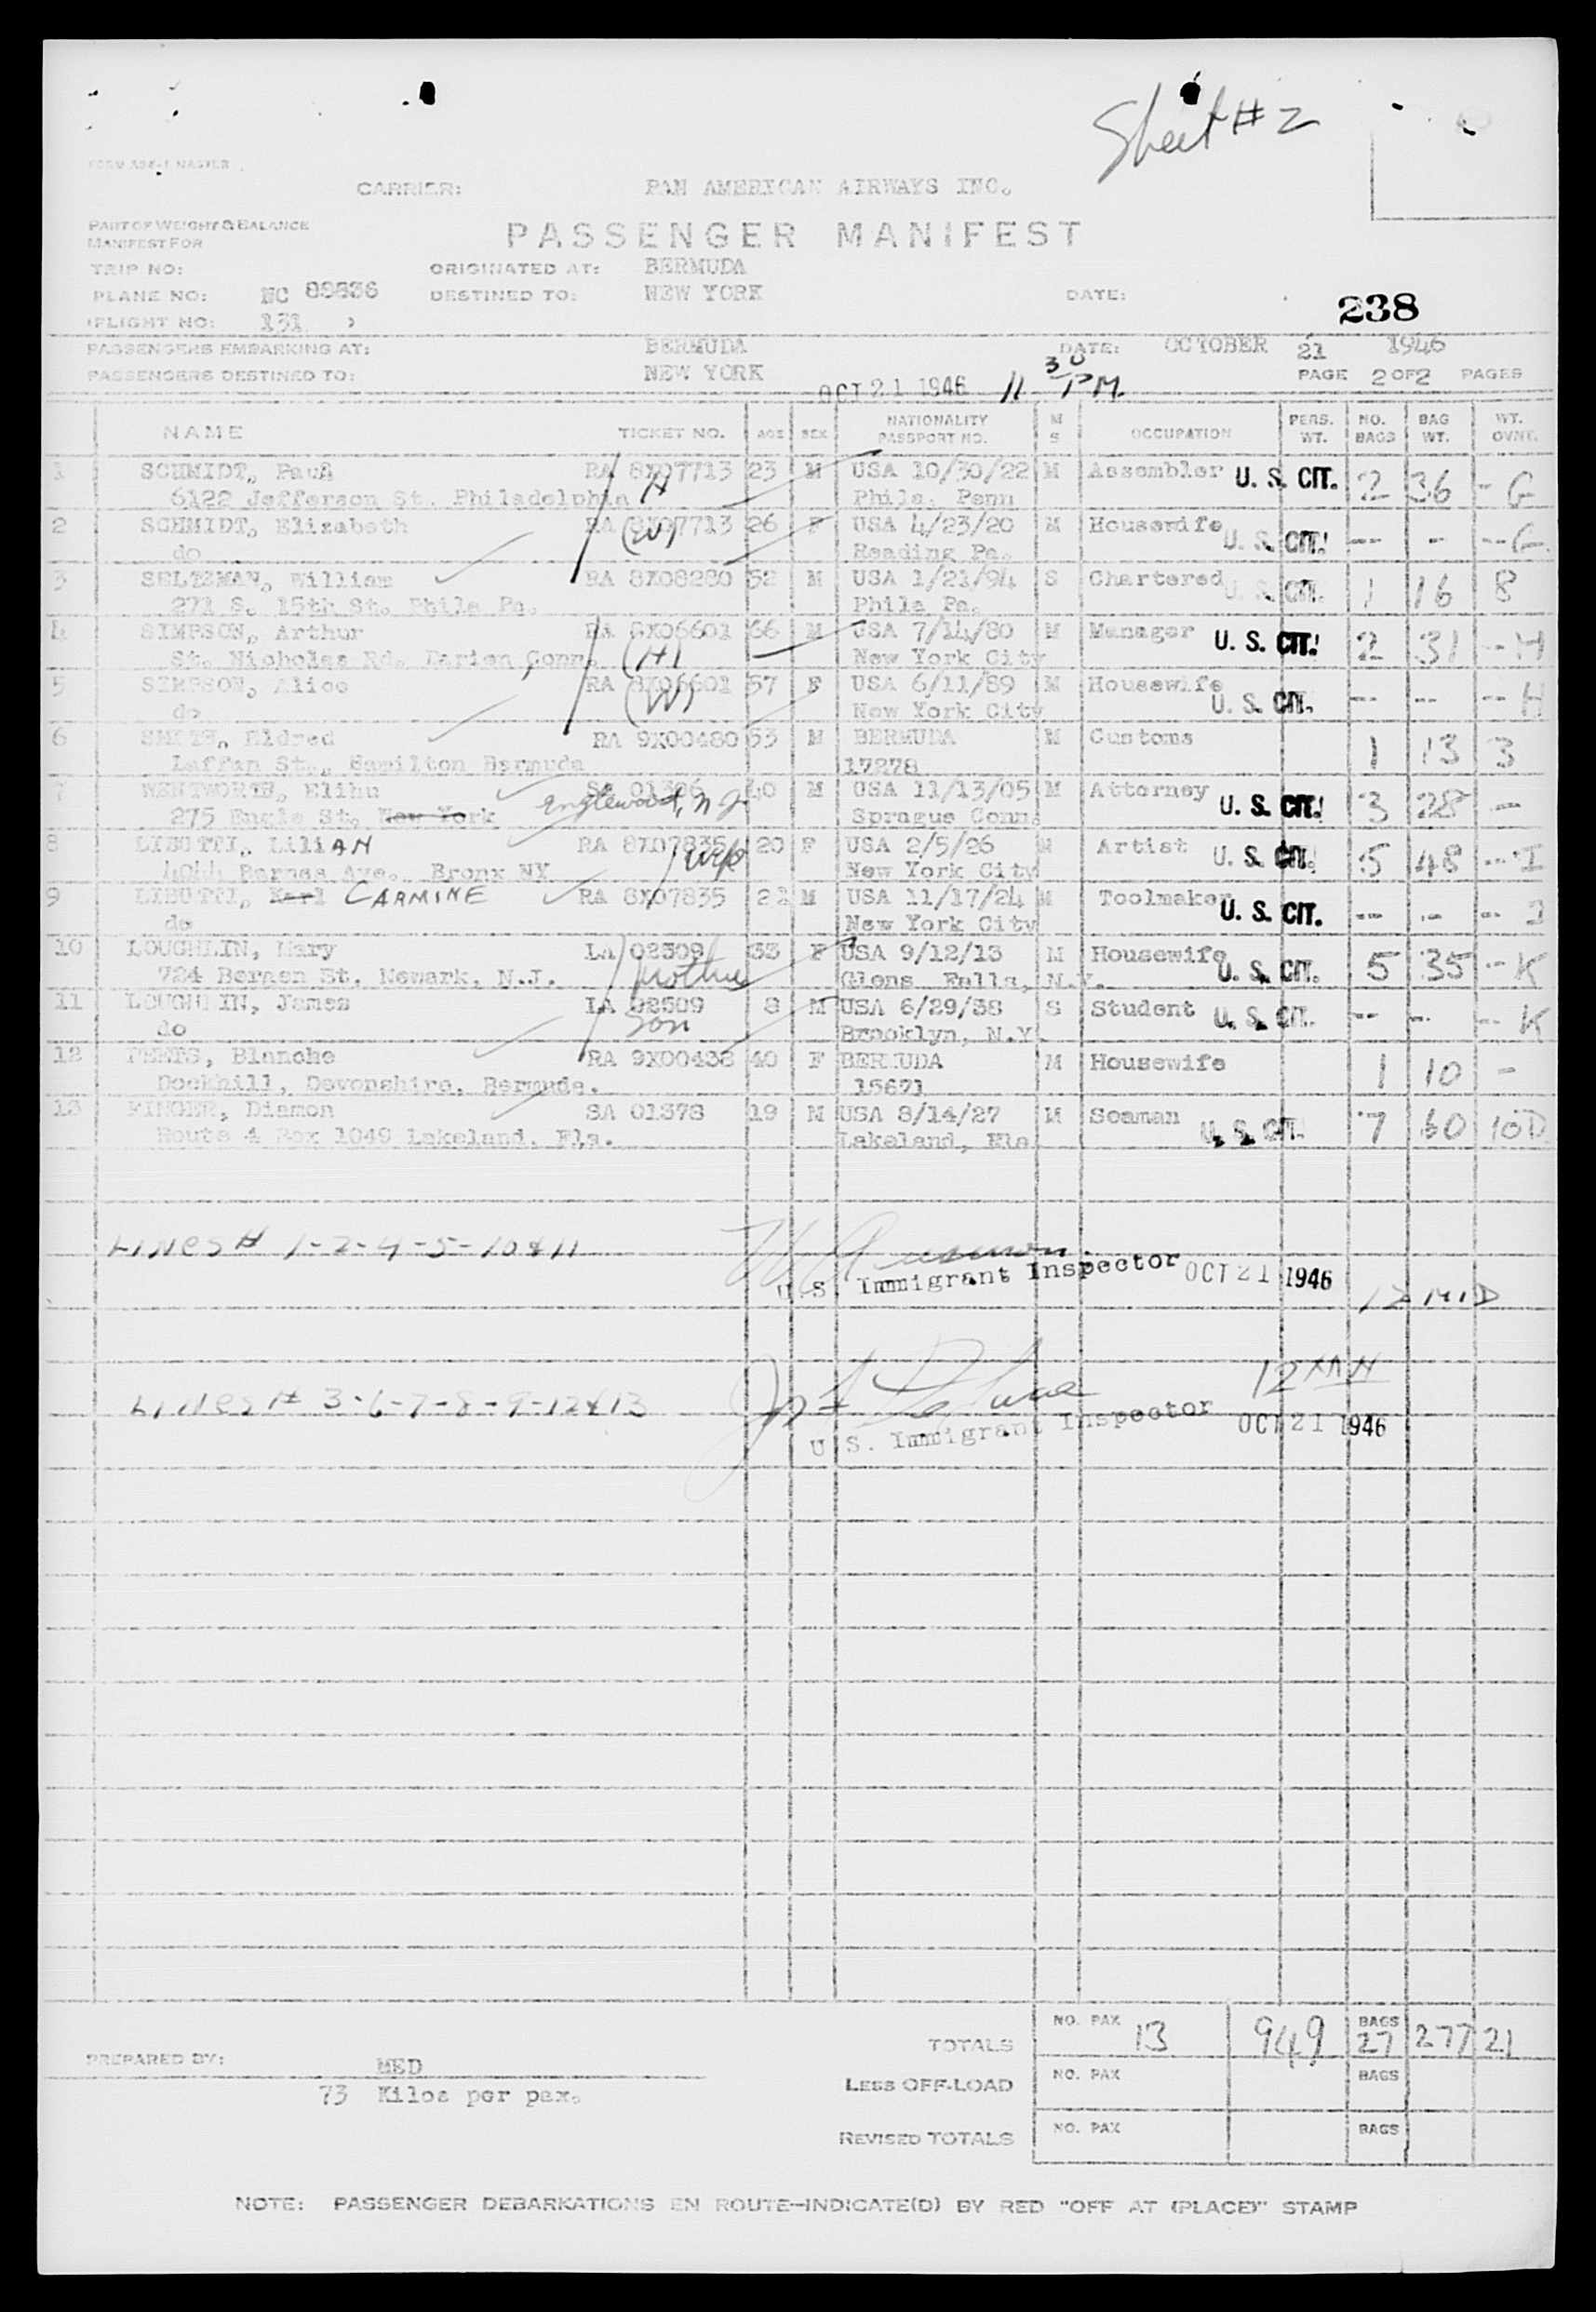 Sheet # 2
FORM MASTER
CARRIER: PAN AMERICAN AIRWAYS INC.
PART OF WEIGHT & BALANCE
MANIFEST FOR
PASSENGER MANIFEST
TRIP NO: ORIGINATED AT: BERMUDA
PLANE NO: NC DESTINED TO: NEW YORK DATE:
238
FLIGHT NO: 131
PASSENGERS EMBARKING AT: BERMUDA DATE: OCTOBER 21 1946
PASSENGERS DESTINED TO: NEW YORK OCT 21 1946 11 30 PM PAGE 2 OF 2 PAGES
NAME TICKET NO. AGE SEX NATIONALITY PASSPORT NO. M S OCCUPATION PERS. WT. NO. BAGS BAG WT. WT. OVNT.
1 SCHMIDT, Paul RA 8X07713 23 M USA 10/30/22 M Assembler U. S. CIT. 2 36 - G
6122 Jefferson St. Philadelphia H Phila. Penn
2 SCHMIDT, Elizabeth RA 8X07713 26 F USA 4/23/20 M Housewife U. S. CIT. -- - -- G
do (W) Reading Pa.
3 SELTZMAN, William RA 8X08280 52 M USA 1/21/94 S Chartered U. S. CIT. 1 16 8
271 S. 15th St. Phila Pa. Phila Pa.
4 SIMPSON, Arthur RA 8X06601 66 M USA 7/14/80 M Manager U. S. CIT. 2 31 -- H
St. Nicholas Rd. Darien, Conn. (H) New York City
5 SIMPSON, Alice RA 8X06601 57 F USA 6/11/89 M Housewife U. S. CIT. -- -- -- H
do (W) New York City
6 SMITH, Eldred RA 9X00480 53 M BERMUDA M Customs 1 13 3
Laffan St., Hamilton Bermuda 17278
7 WENTWORTH, Elihu SA 01306 40 M USA 11/13/05 M Attorney U. S. CIT. 3 28 -
275 Engle St. New York Englewood, N J. Sprague Conn.
8 LIBUTTI, LiliAN RA 8X07835 20 F USA 2/5/26 M Artist U. S. CIT. 5 48 -- I
4044 Barnes Ave. Bronx NY wife New York City
9 LIBUTTI, Karl CARMINE RA 8X07835 22 M USA 11/17/24 M Toolmaker U. S. CIT. -- -- -- I
do New York City
10 LOUGHLIN, Mary LA 02509 33 F USA 9/12/13 M Housewife U. S. CIT. 5 35 -- K
724 Bergen St. Newark, N.J. Mother Glens Falls, N.Y.
11 LOUGHLIN, James LA 02509 8 M USA 6/29/38 S Student U. S. CIT. -- -- -- K
do son Brooklyn, N.Y.
12 Blanche RA 9X00438 40 F BERMUDA M Housewife 1 10 -
Dockhill, Devonshire, Bermuda. 15671
13 FINGER, Diamon SA 01378 19 M USA 8/14/27 M Seaman U. S. CIT. 7 60 10 D
Route 4 Box 1049 Lakeland, Fla. Lakeland, Fla
LINES # 1-2-4-5-10 & 11
U. S. Immigrant Inspector OCT 21 1946 12 MID
LINES # 3-6-7-8-9-12 & 13
U. S. Immigrant Inspector OCT 21 1946
TOTALS NO. PAX 13 949 BAGS 27 277 21
PREPARED BY: MED
73 Kilos per pax.
LESS OFF-LOAD NO. PAX BAGS
REVISED TOTALS NO. PAX BAGS
NOTE: PASSENGER DEBARKATIONS EN ROUTE-INDICATE(D) BY RED "OFF AT (PLACE)" STAMP